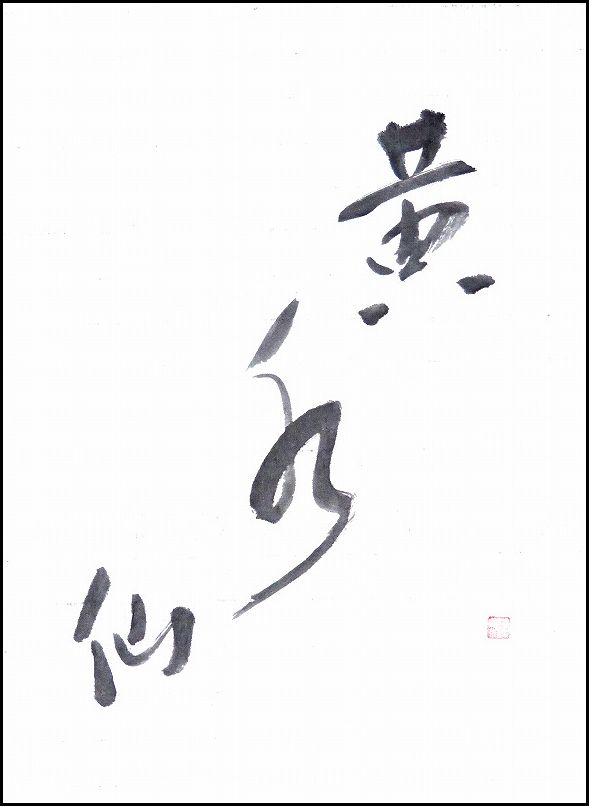 黄水仙